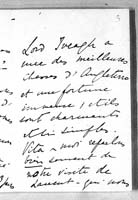 Lord Iveagh a
une des meilleures
chasses d'Angleterre
et une fortune
immense, et ils
sont charmants
et si simples.
Vita
bien souvent de
notre visite de